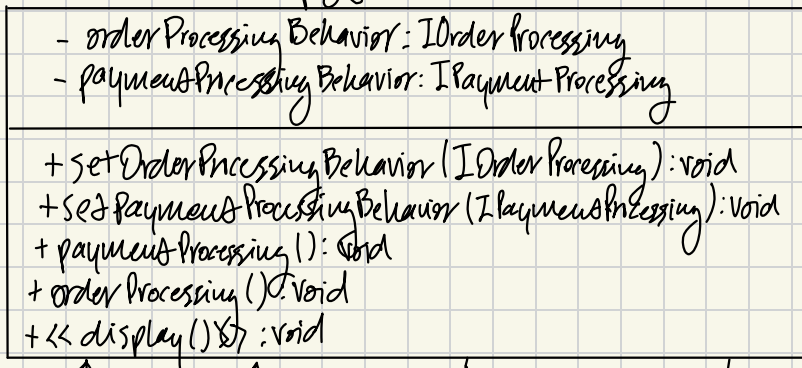 - orderProcessingBehavior: IOrderProcessing
- paymentProcessingBehavior: IPaymentProcessing
+ setOrderProcessingBehavior(IOrderProcessing): void
+ setPaymentProcessingBehavior(IPaymentProcessing): void
+ paymentProcessing(): void
+ orderProcessing(): void
+ << display()>> : void